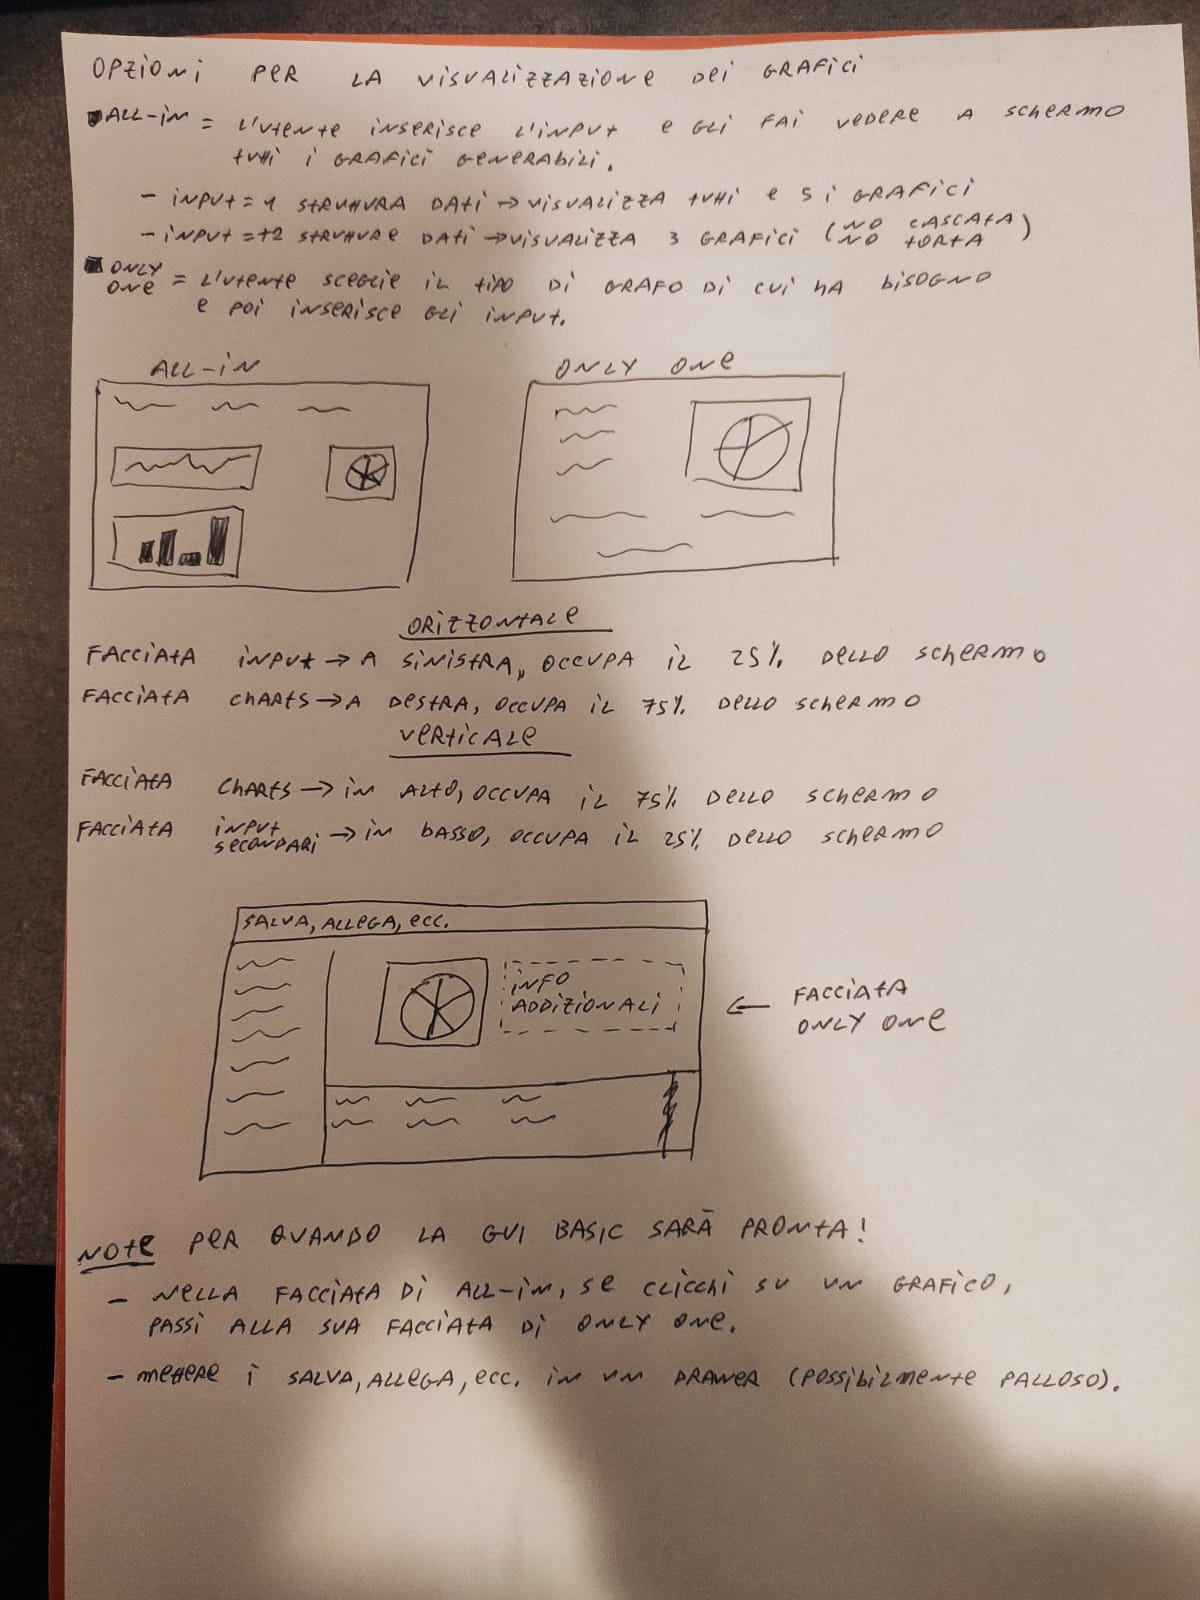 OPZIONI PER LA VISUALIZZAZIONE DEI GRAFICI
ALL-IN = L'UTENTE INSERISCE L'INPUT E GLI FAI VEDERE A SCHERMO
TUTTI I GRAFICI GENERABILI.
- INPUT = 1 STRUTTURA DATI → VISUALIZZA TUTTI E 5 I GRAFICI
- INPUT = +2 STRUTTURE DATI → VISUALIZZA 3 GRAFICI (NO CASCATA
NO TORTA)
ONLY ONE = L'UTENTE SCEGLIE IL TIPO DI GRAFO DI CUI HA BISOGNO
E POI INSERISCE GLI INPUT.
ALL-IN
ONLY ONE
ORIZZONTALE
FACCIATA INPUT → A SINISTRA, OCCUPA IL 25% DELLO SCHERMO
FACCIATA CHARTS → A DESTRA, OCCUPA IL 75% DELLO SCHERMO
VERTICALE
FACCIATA CHARTS → IN ALTO, OCCUPA IL 75% DELLO SCHERMO
FACCIATA INPUT SECONDARI → IN BASSO, OCCUPA IL 25% DELLO SCHERMO
SALVA, ALLEGA, ECC.
INFO
ADDIZIONALI
← FACCIATA
ONLY ONE
NOTE PER QUANDO LA GUI BASIC SARÀ PRONTA!
- NELLA FACCIATA DI ALL-IN, SE CLICCHI SU UN GRAFICO,
PASSI ALLA SUA FACCIATA DI ONLY ONE.
- METTERE I SALVA, ALLEGA, ECC. IN UN DRAWER (POSSIBILMENTE PALLOSO).